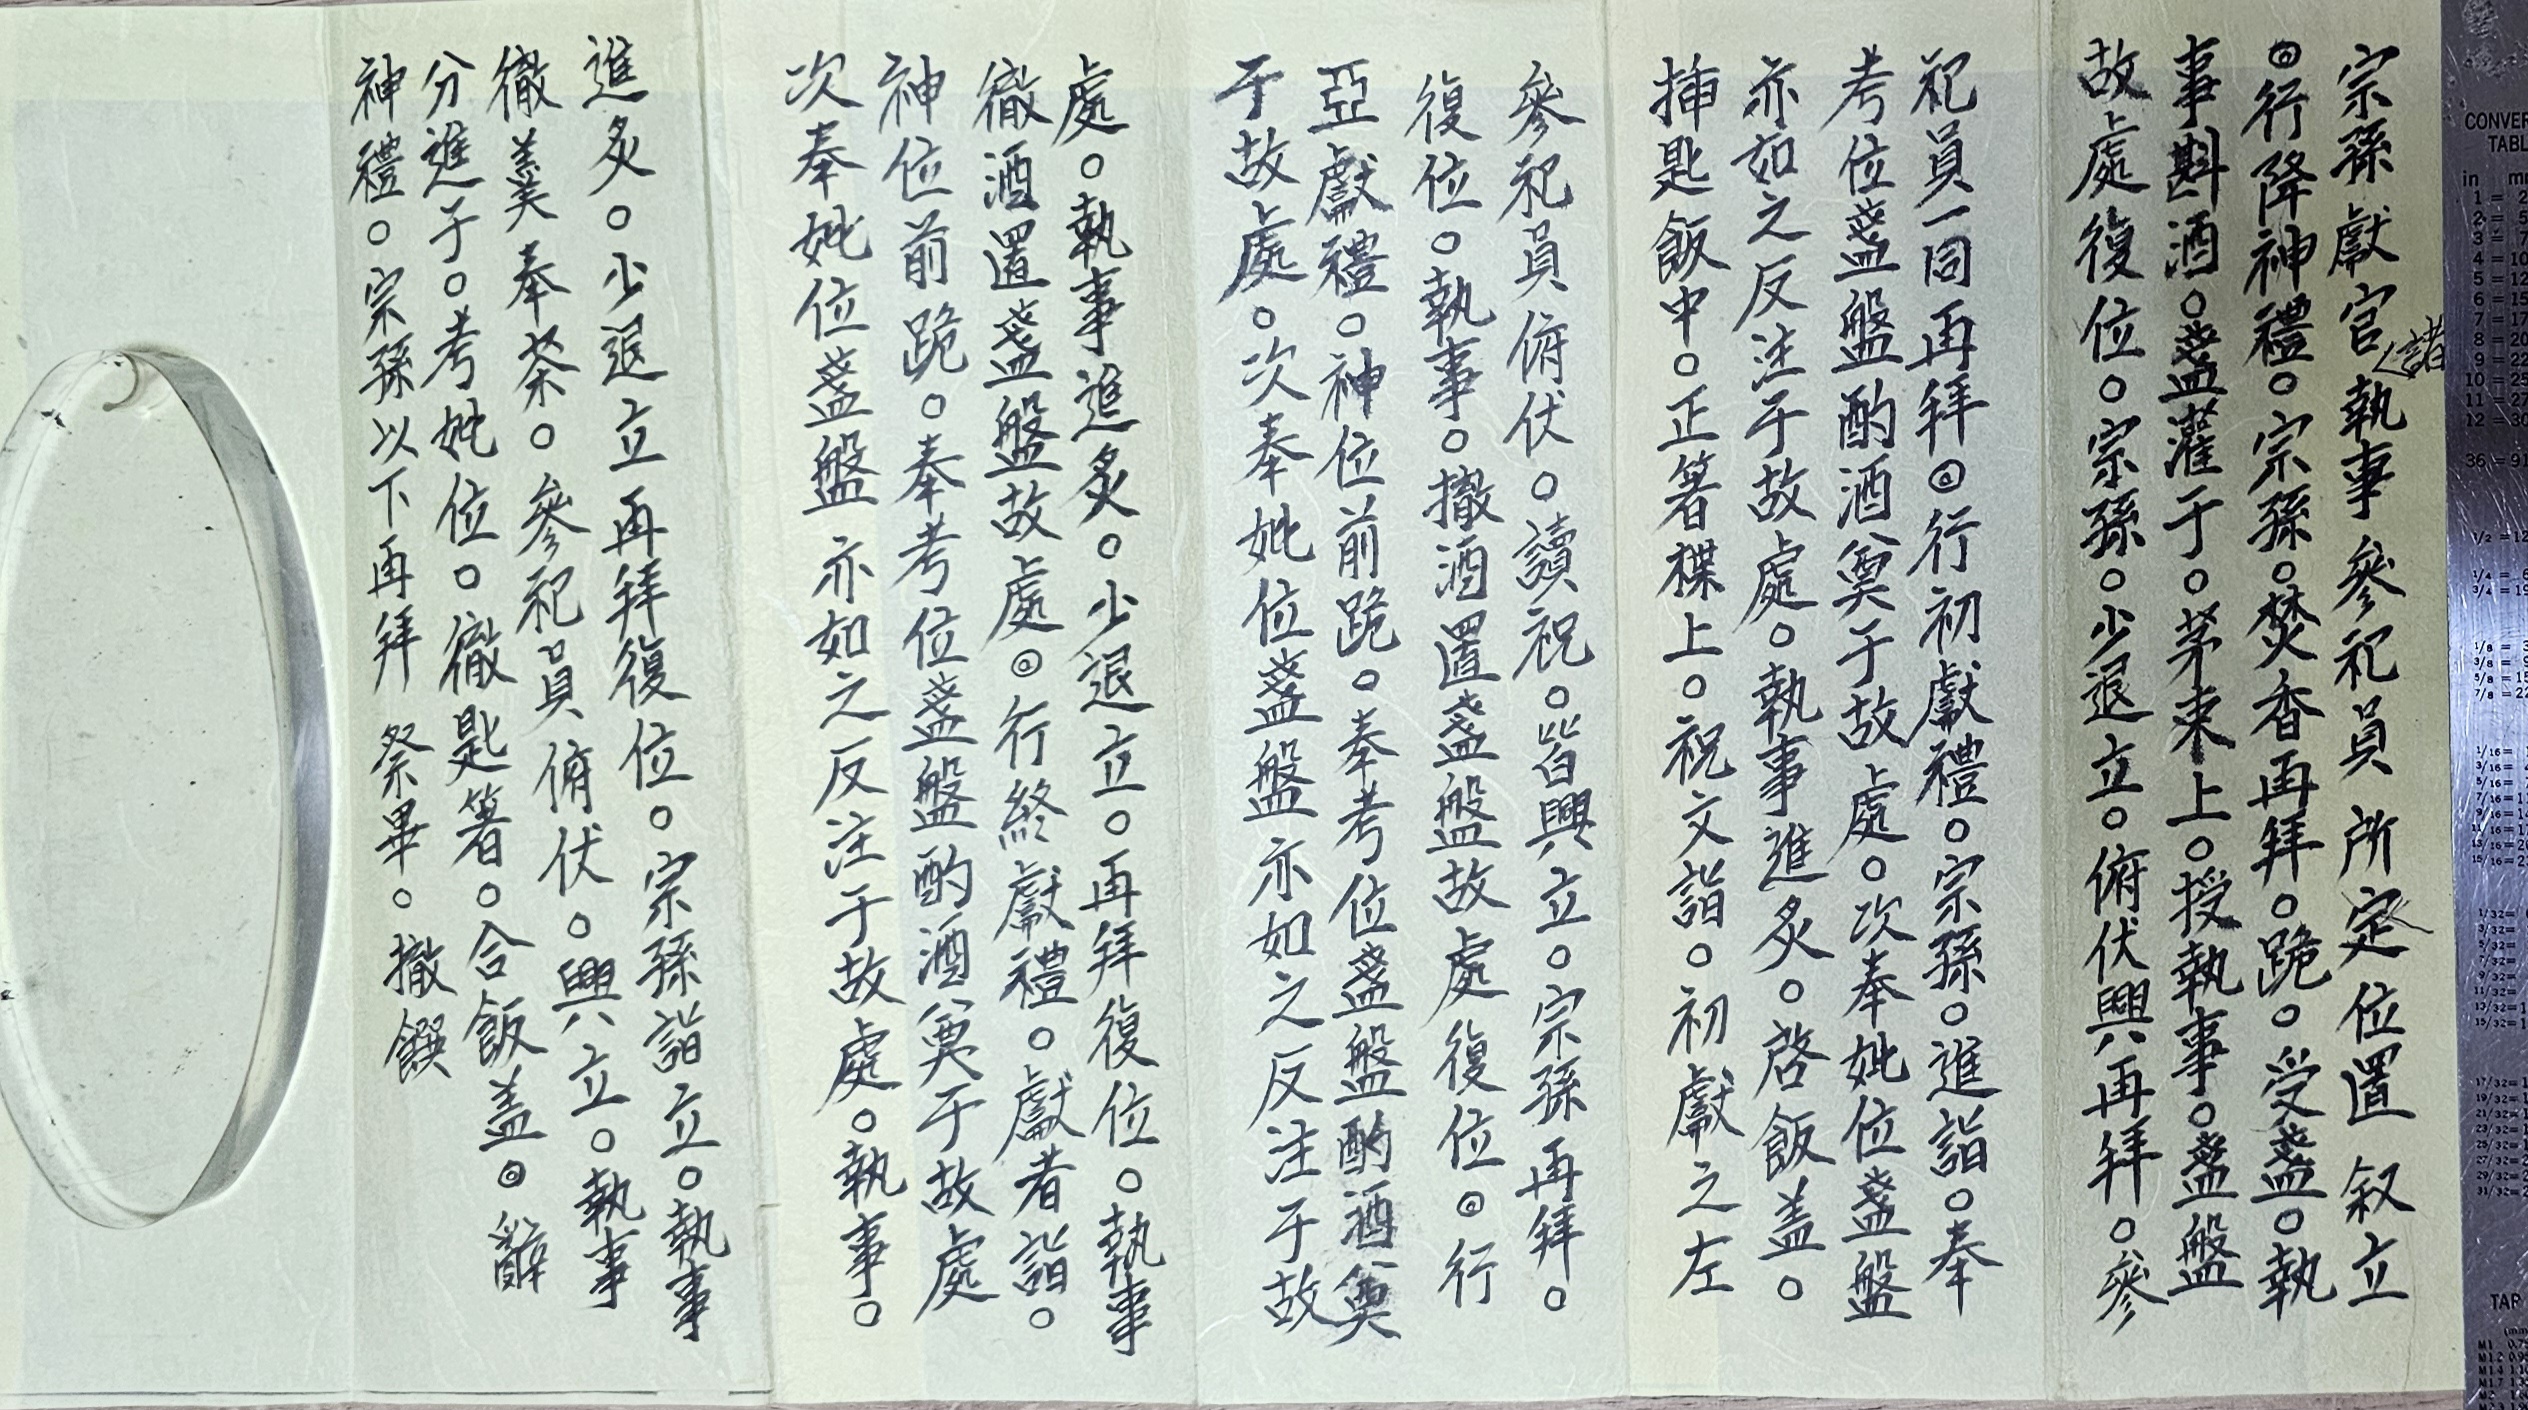 宗孫獻官諸執事參祀員所定位置叙立
◎行降神禮○宗孫○焚香再拜○跪○受盞○執
事斟酒○盞灌于○茅束上○授執事○盞盤
故處復位○宗孫○少退立○俯伏興再拜○參
祀員一同再拜◎行初獻禮○宗孫○進詣○奉
考位盞盤酌酒奠于故處○次奉妣位盞盤
亦如之反注于故處○執事進炙○啓飯盖○
挿匙飯中○正箸楪上○祝文詣○初獻之左
參祀員俯伏○讀祝○皆興立○宗孫再拜○
復位○執事○撤酒置盞盤故處復位◎行
亞獻禮○神位前跪○奉考位盞盤酌酒奠
于故處○次奉妣位盞盤亦如之反注于故
處○執事進炙○少退立○再拜復位○執事
徹酒置盞盤故處◎行終獻禮○獻者詣○
神位前跪○奉考位盞盤酌酒奠于故處
次奉妣位盞盤亦如之反注于故處○執事○
進炙○少退立再拜復位○宗孫詣立○執事
徹羹奉茶○參祀員俯伏○興立○執事
分進于○考妣位○徹匙箸○合飯盖◎辭
神禮○宗孫以下再拜 祭畢○撤饌
CONVER
TABL
in